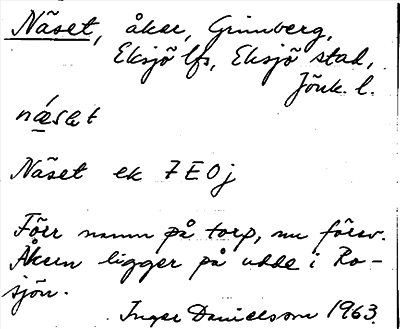 Näset, åker, Grimberg,
Eksjö lfs, Eksjö stad,
Jönk. l.
nǽsət
Näset ek 7E0j
Förr namn på torp, nu försv.
Åkern ligger på udde i Ro-
sjön.
Inger Danielsson 1963.